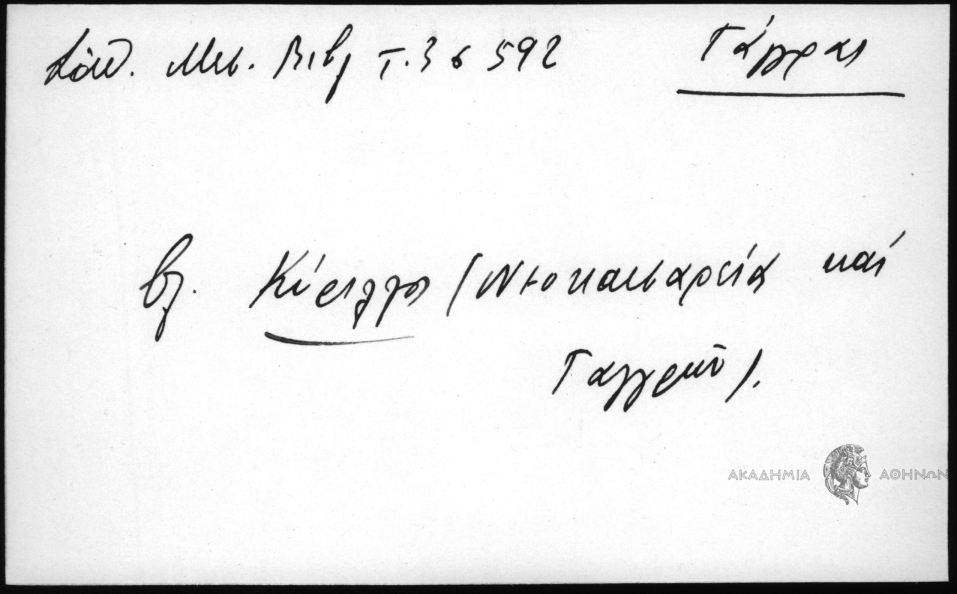 Σάθ. Μεσ. Βιβλ τ. 3 σ 592
Γάγγραι
βλ. Κύριλλος (Νεοκαισαρείας καί
Γαγγρῶν).
ΑΚΑΔΗΜΙΑ ΑΘΗΝΩΝ